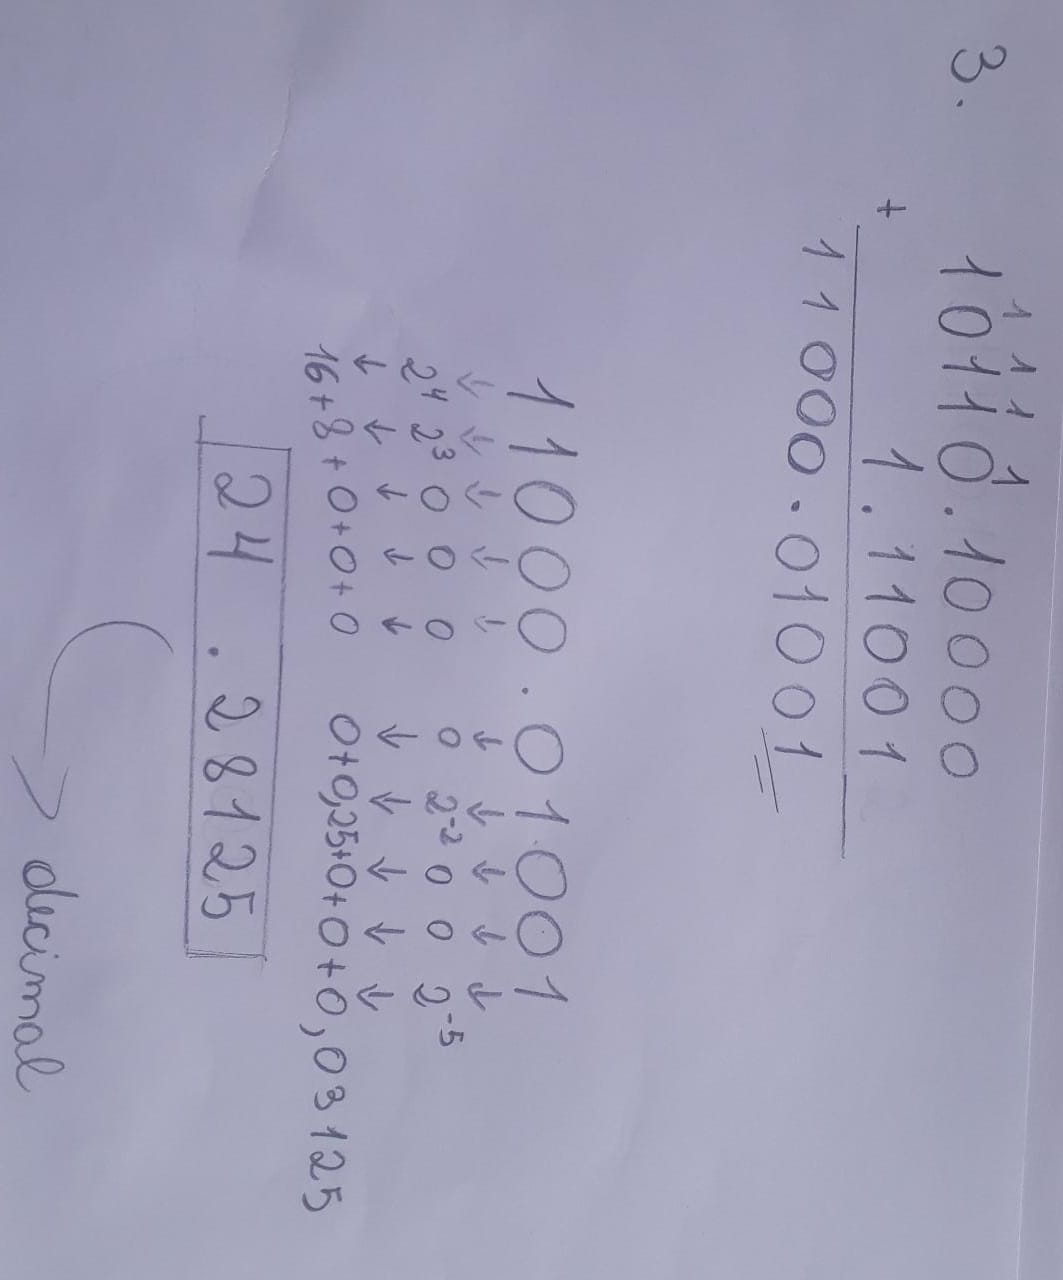 3.
1 1 1 1
10110.10000
+ 1.11001
11000.01001
11000.01001
↓ ↓ ↓ ↓ ↓ ↓ ↓ ↓ ↓ ↓
2⁴ 2³ 0 0 0 0 2⁻² 0 0 2⁻⁵
↓ ↓ ↓ ↓ ↓ ↓ ↓ ↓ ↓ ↓
16+8+0+0+0 0+0,25+0+0+0,03125
24.28125
decimal